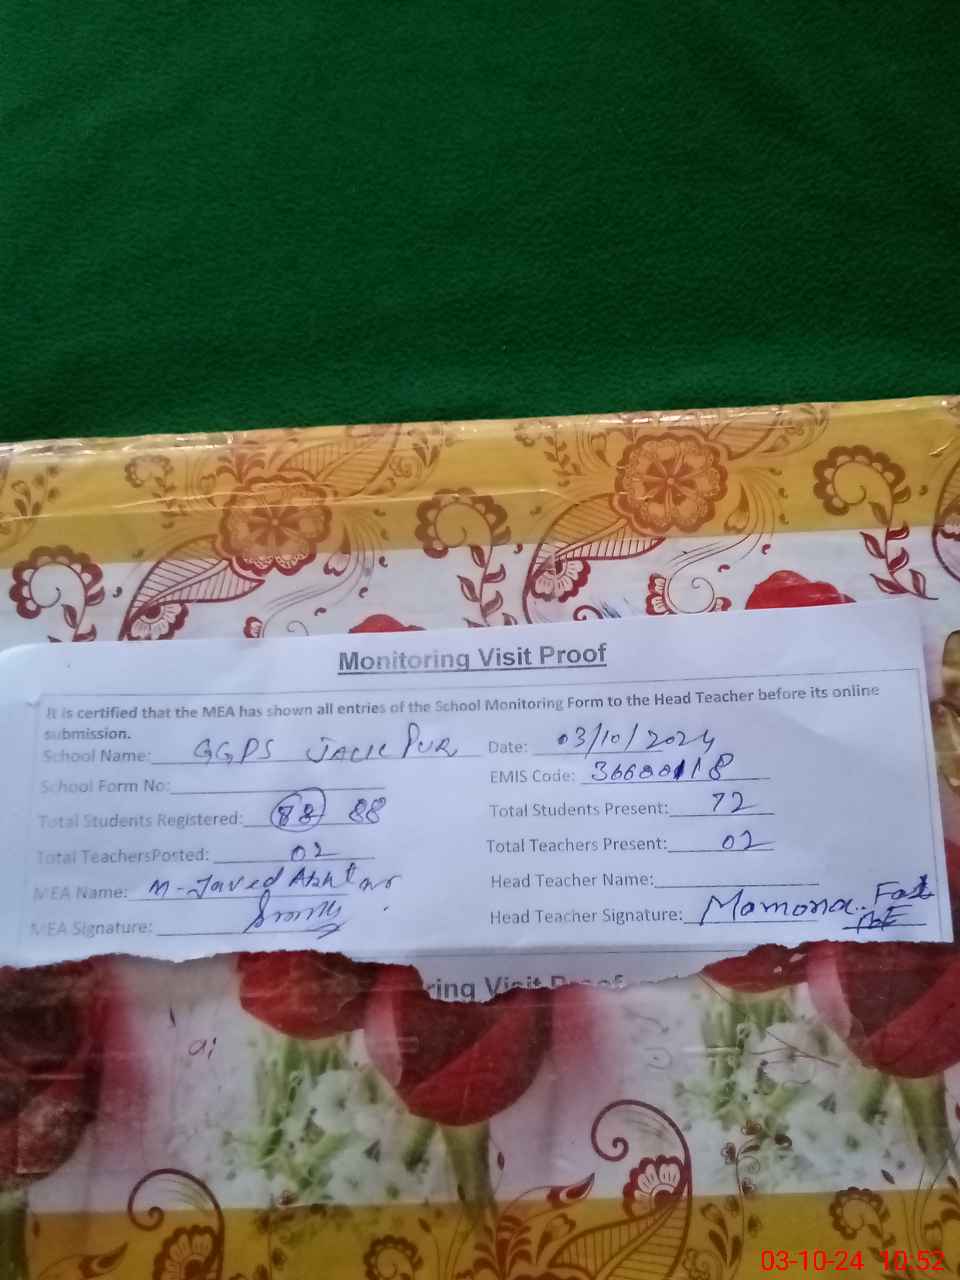 Monitoring Visit Proof
It is certified that the MEA has shown all entries of the School Monitoring Form to the Head Teacher before its online
submission.
School Name: GGPS Date: 03/10/2024
School Form No: EMIS Code:
Total Students Registered: 88 88 Total Students Present: 72
Total TeachersPosted: 02 Total Teachers Present: 02
MEA Name: M-Javed Akhtar Head Teacher Name:
MEA Signature: Head Teacher Signature: Mamona
ring Visit Proof
03-10-24 10:52